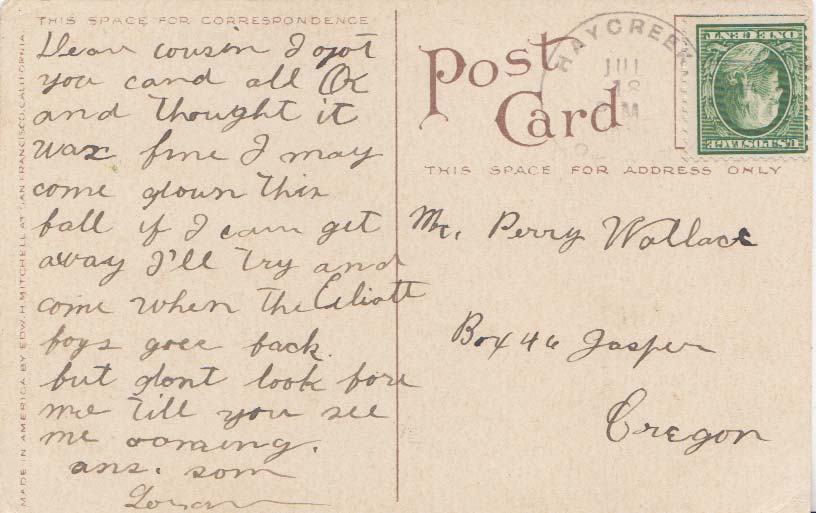 THIS SPACE FOR CORRESPONDENCE
Dear cousin I got
you card all OK
and thought it
was fine I may
come down this
fall if I can get
away I'll try and
come when the Eliott
boys goes back.
but dont look fore
me till you see
me coming.
ans. som
MADE IN AMERICA BY EDW. H. MITCHELL AT SAN FRANCISCO, CALIFORNIA.
Post
Card
HAYCREEK
JUL
18
M
U.S. POSTAGE
ONE CENT
THIS SPACE FOR ADDRESS ONLY
Mr. Perry Wallace
Box 46 Jasper
Oregon